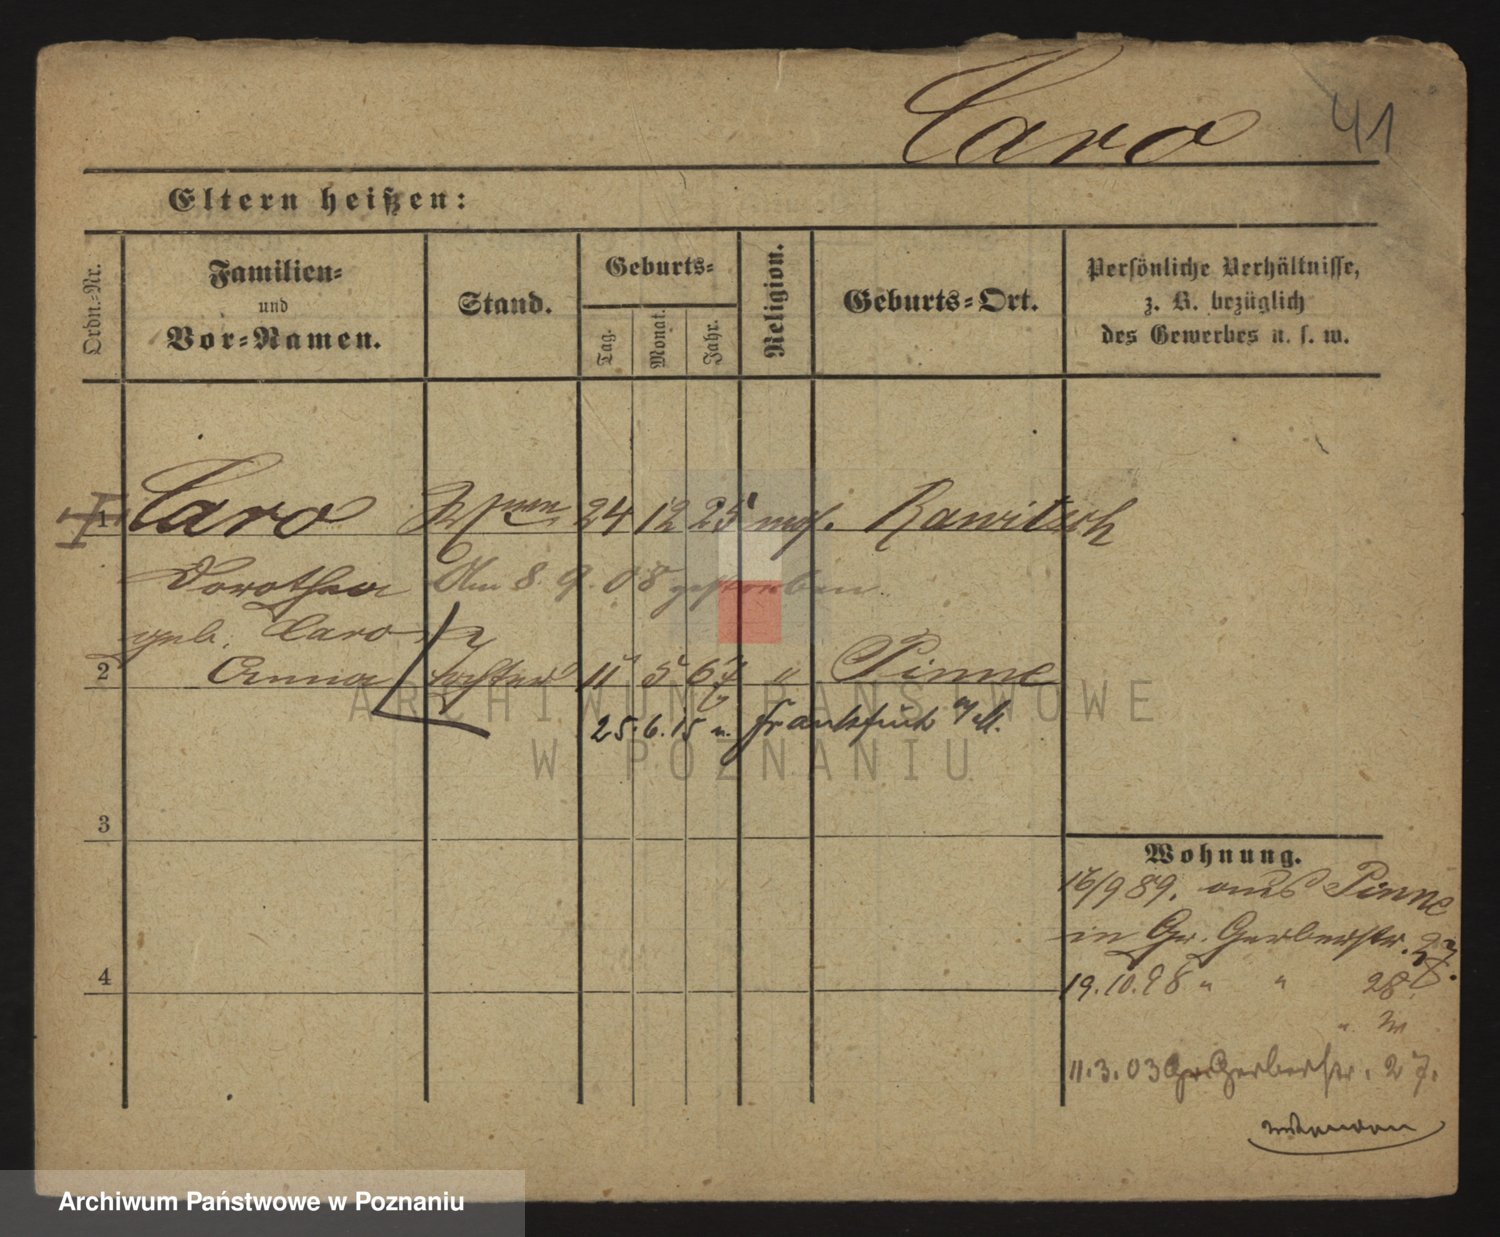 Caro 41
Eltern heißen:
Ordn.-Nr.
Familien-
und
Vor-Namen.
Stand.
Geburts-
Tag.
Monat.
Jahr.
Religion.
Geburts-Ort.
Persönliche Verhältnisse,
z. B. bezüglich
des Gewerbes u. s. w.
1 Caro 24 12 25 mos. Rawitsch
Dorothea Am 8. 9. 08 gestorben
geb. Caro
2 Anna Tochter 11 5 67 " Pinne
25.6.15 n. Frankfurt a/M.
3
4
Wohnung.
16/9 89. aus Pinne
in Gr. Gerberstr. 27.
19.10.98 " " 28.
11.3.03 Gr. Gerberstr. 27.
ARCHIWUM PAŃSTWOWE
W POZNANIU
Archiwum Państwowe w Poznaniu